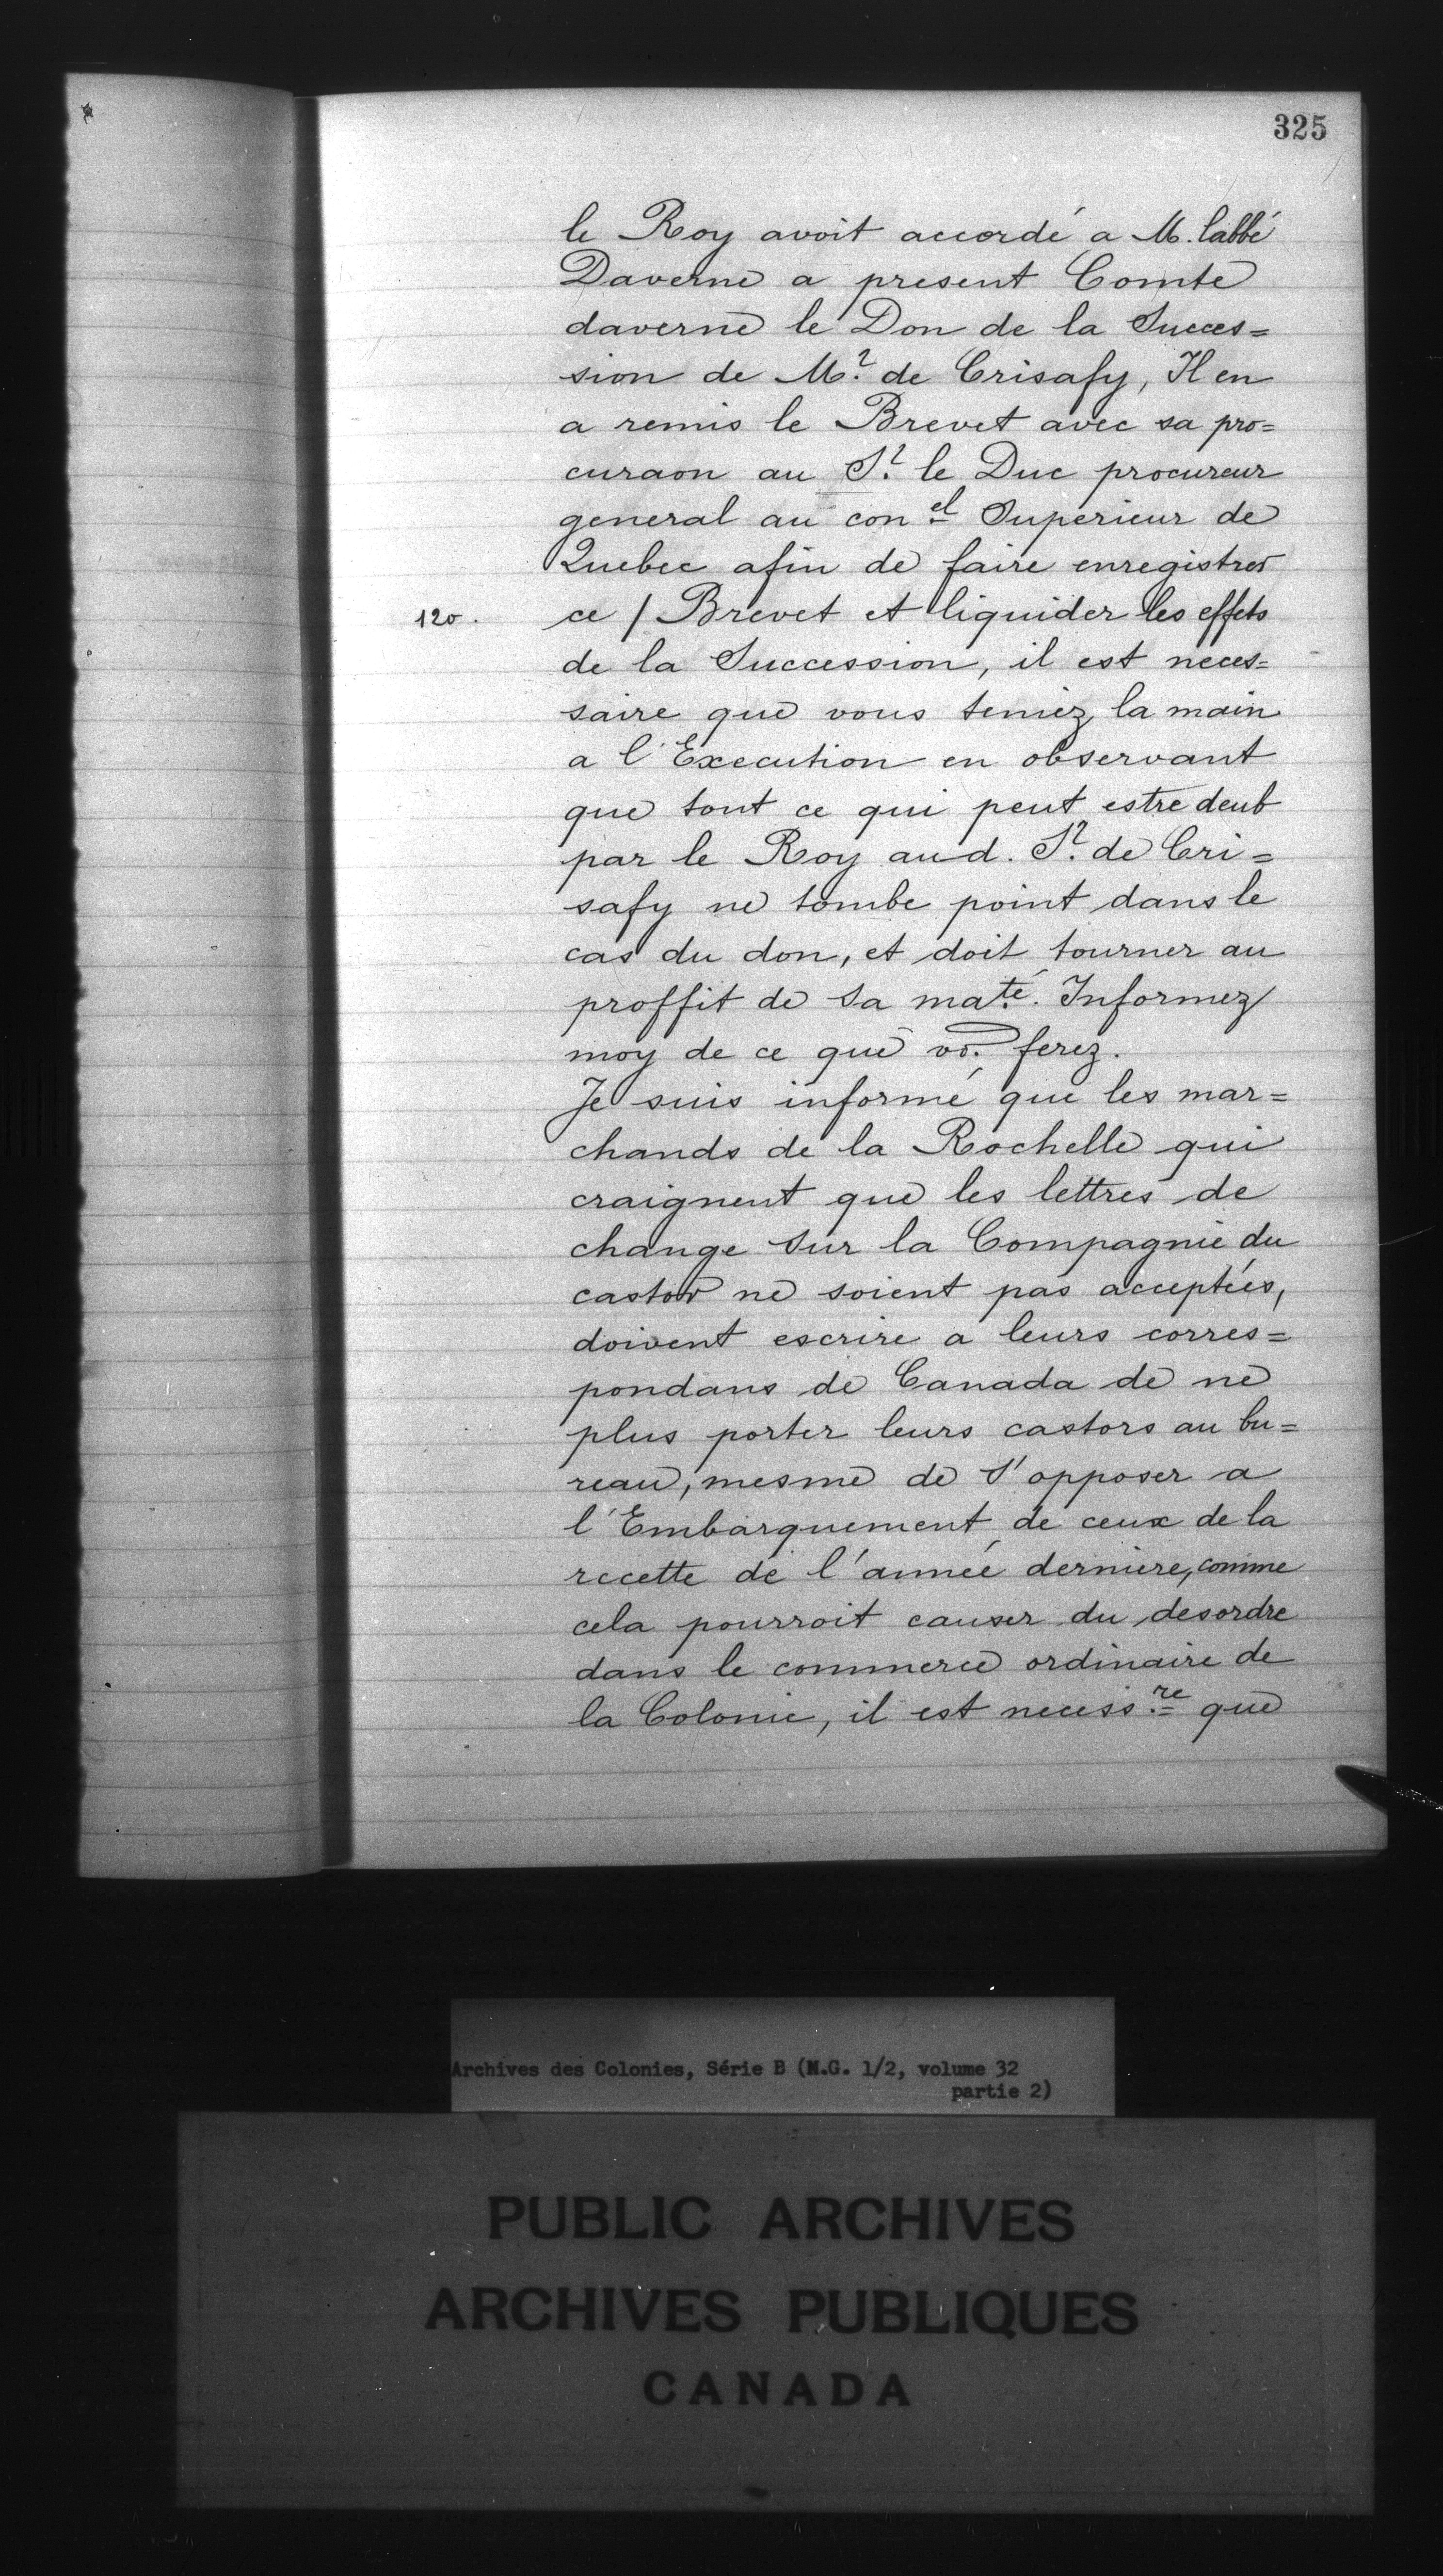 325
le Roy avoit accordé a M. labbé
Daverne a present Comte
daverne le Don de la Succes=
sion de Mr. de Crisafy, Il en
a remis le Brevet avec sa pro=
curaon au Sr. le Duc procureur
general au con el Superieur de
Quebec afin de faire enregistrer
120. ce / Brevet et liquider les effets
de la Succession, il est neces=
saire que vous teniez la main
a l'Execution en observant
que tout ce qui peut estre deub
par le Roy aud. Sr. de Cri=
safy ne tombe point dans le
cas du don, et doit tourner au
proffit de sa maté. Informez
moy de ce que vo. ferez.
Je suis informé que les mar=
chands de la Rochelle qui
craignent que les lettres de
change sur la Compagnie du
castor ne soient pas acceptées,
doivent escrire a leurs corres=
pondans de Canada de ne
plus porter leurs castors au bu=
reau, mesme de s'opposer a
l'Embarquement de ceux de la
recette de l'année derniere, comme
cela pourroit causer du desordre
dans le commerce ordinaire de
la Colonie, il est necess.re que
Archives des Colonies, Série B (M.G. 1/2, volume 32
partie 2)
PUBLIC ARCHIVES
ARCHIVES PUBLIQUES
CANADA